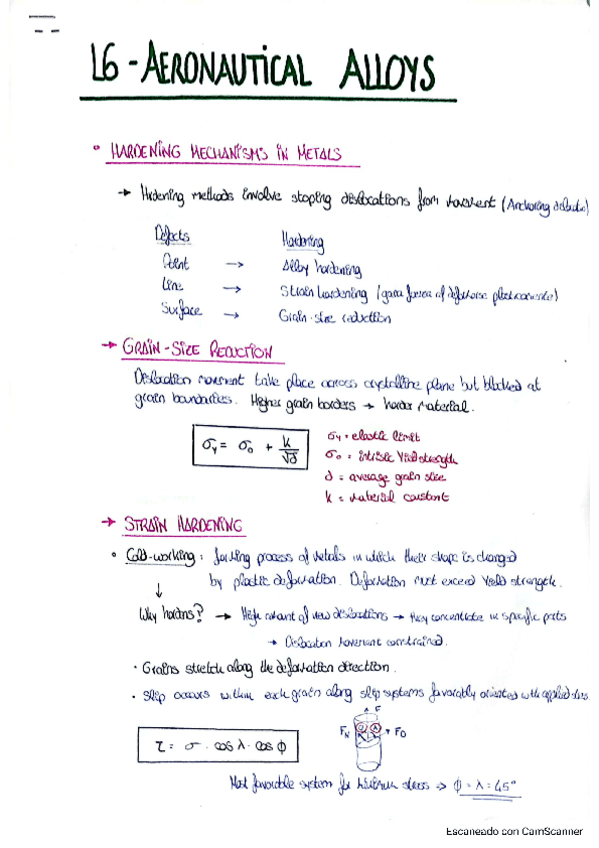 L6 - AERONAUTICAL ALLOYS
• HARDENING MECHANISMS IN METALS
→ Hrdening methods involve stoping dislocations from movement (Anchoring defects)
Defects Hardening
Point → Alloy hardening
Line → Strain hardening (gana fuerza al deformarse plasticamente)
Surface → Grain-size reduction
→ GRAIN-SIZE REDUCTION
Dislocation movement take place across crystalline plane but blocked at
grain boundaries. Higher grain borders → harder material.
σy = σ0 + k/√d
σy = elastic limit
σ0 = intrisic Yield strength
d = average grain size
k = material constant
→ STRAIN HARDENING
• Cold-working: forming process of metals in which their shape is changed
by plastic deformation. Deformation must exceed Yield strength.
↓
Why hardens? → High amount of new dislocations → they concentrate in specific parts
→ Dislocation movement constrained.
· Grains stretch along the deformation direction.
· Slip occurs within each grain along slip systems favorably oriented with applied stress.
F
FN FD
τ = σ · cos λ · cos φ
Most favorable system for maximum stress → φ = λ = 45°
Escaneado con CamScanner